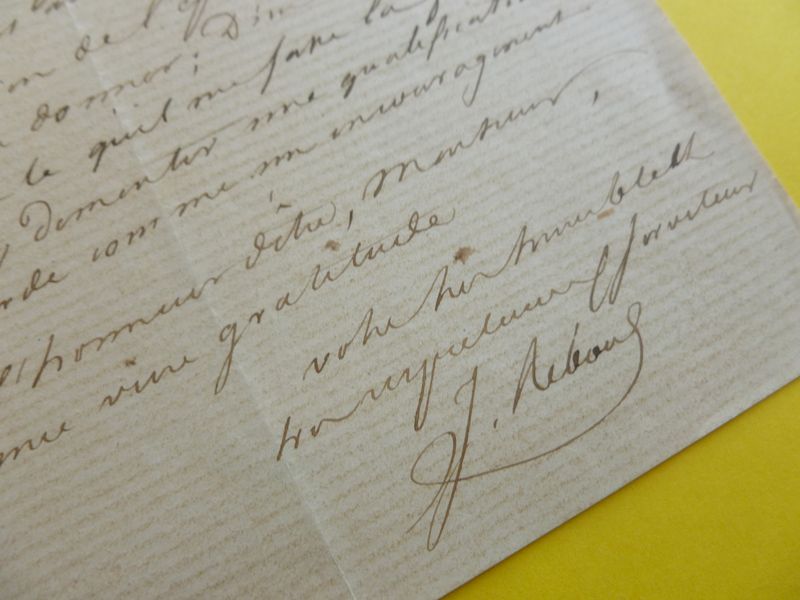 de l'
donner; D
le qu'il me faße la
dementir une qualificati
rde comme un encouragement
l'honneur d'être, Monsieur,
vive gratitude
votre très humble et
très respectueux serviteur
J. Reboul